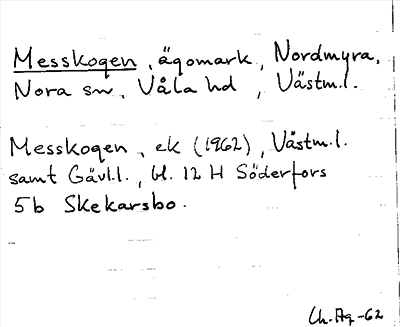 Messkogen, ägomark, Nordmyra,
Nora sn, Våla hd, Västm.l.
Messkogen, ek (1962), Västm.l.
samt Gävl.l., bl. 12 H Söderfors
5b Skekarsbo.
Ch.Ag-62